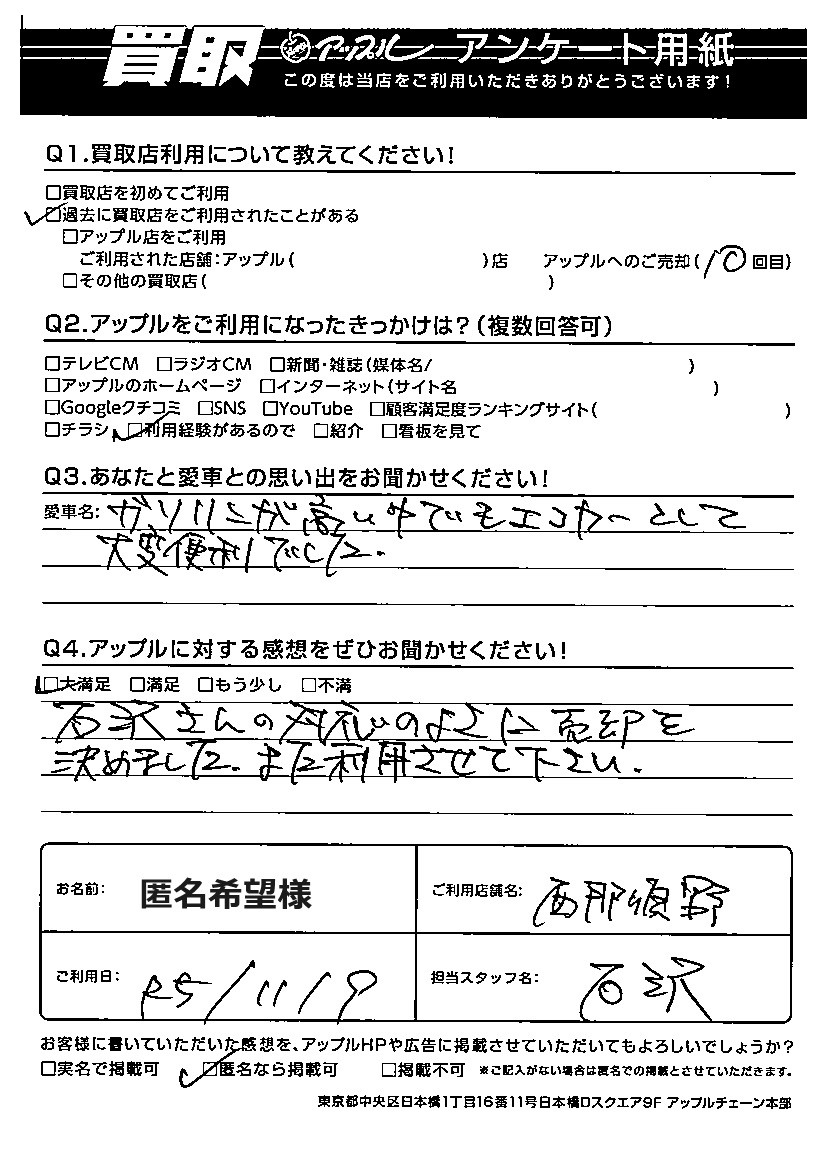 買取 アップル アンケート用紙
この度は当店をご利用いただきありがとうございます!
Q1.買取店利用について教えてください!
□買取店を初めてご利用
☑過去に買取店をご利用されたことがある
□アップル店をご利用
ご利用された店舗:アップル( )店 アップルへのご売却(10回目)
□その他の買取店( )
Q2.アップルをご利用になったきっかけは?(複数回答可)
□テレビCM □ラジオCM □新聞・雑誌(媒体名/ )
□アップルのホームページ □インターネット(サイト名 )
□Googleクチコミ □SNS □YouTube □顧客満足度ランキングサイト( )
□チラシ ☑利用経験があるので □紹介 □看板を見て
Q3.あなたと愛車との思い出をお聞かせください!
愛車名: ガソリンが高い中でもエコカーとして
大変便利でした.
Q4.アップルに対する感想をぜひお聞かせください!
☑大満足 □満足 □もう少し □不満
石沢さんの対応のよさに売却を
決めました. また利用させて下さい.
お名前: 匿名希望様 ご利用店舗名: 西那須野
ご利用日: R5/11/9 担当スタッフ名: 石沢
お客様に書いていただいた感想を、アップルHPや広告に掲載させていただいてもよろしいでしょうか?
□実名で掲載可 ☑匿名なら掲載可 □掲載不可 ※ご記入がない場合は匿名での掲載とさせていただきます。
東京都中央区日本橋1丁目16番11号日本橋Dスクエア9F アップルチェーン本部